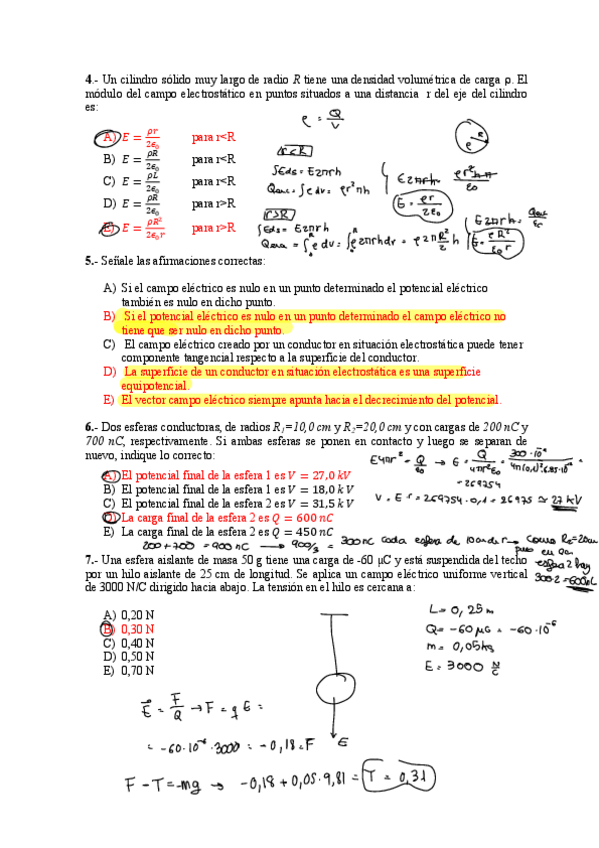 4.- Un cilindro sólido muy largo de radio R tiene una densidad volumétrica de carga ρ. El
módulo del campo electrostático en puntos situados a una distancia r del eje del cilindro
es:
ρ = Q/V
R
ρ
A) E = ρr/2ε₀ para r<R
B) E = ρR/2ε₀ para r<R
C) E = ρL/2ε₀ para r<R
D) E = ρR/2ε₀ para r>R
E) E = ρR²/2ε₀r para r>R
r<R
∫Eds = E2πrh
Qenc = ∫ρdv = ρr²πh
E2πrh = ρr²πh/ε₀
E = ρr/2ε₀
r>R
∫Eds = E2πrh
E2πrh = Qenc/ε₀
5.- Señale las afirmaciones correctas:
A) Si el campo eléctrico es nulo en un punto determinado el potencial eléctrico
también es nulo en dicho punto.
B) Si el potencial eléctrico es nulo en un punto determinado el campo eléctrico no
tiene que ser nulo en dicho punto.
C) El campo eléctrico creado por un conductor en situación electrostática puede tener
componente tangencial respecto a la superficie del conductor.
D) La superficie de un conductor en situación electrostática es una superficie
equipotencial.
E) El vector campo eléctrico siempre apunta hacia el decrecimiento del potencial.
6.- Dos esferas conductoras, de radios R₁=10,0 cm y R₂=20,0 cm y con cargas de 200 nC y
700 nC, respectivamente. Si ambas esferas se ponen en contacto y luego se separan de
nuevo, indique lo correcto:
E4πr² = Q/ε₀ → E = Q/4πr²ε₀
= 269754
V = E r = 269754 · 0,1 = 26975 ≅ 27 kV
A) El potencial final de la esfera 1 es V = 27,0 kV
B) El potencial final de la esfera 1 es V = 18,0 kV
C) El potencial final de la esfera 2 es V = 31,5 kV
D) La carga final de la esfera 2 es Q = 600 nC
E) La carga final de la esfera 2 es Q = 450 nC
200 + 700 = 900 nC → 900/3 = 300 nC cada esfera de
300·2 = 600nC
7.- Una esfera aislante de masa 50 g tiene una carga de -60 μC y está suspendida del techo
por un hilo aislante de 25 cm de longitud. Se aplica un campo eléctrico uniforme vertical
de 3000 N/C dirigido hacia abajo. La tensión en el hilo es cercana a:
A) 0,20 N
B) 0,30 N
C) 0,40 N
D) 0,50 N
E) 0,70 N
L = 0,25 m
Q = -60 μC = -60·10⁻⁶
m = 0,05 kg
E = 3000 N/C
E
E = F/Q → F = q E =
= -60·10⁻⁶ · 3000 = -0,18 = F
F - T = -mg → -0,18 + 0,05·9,81 = T = 0,31